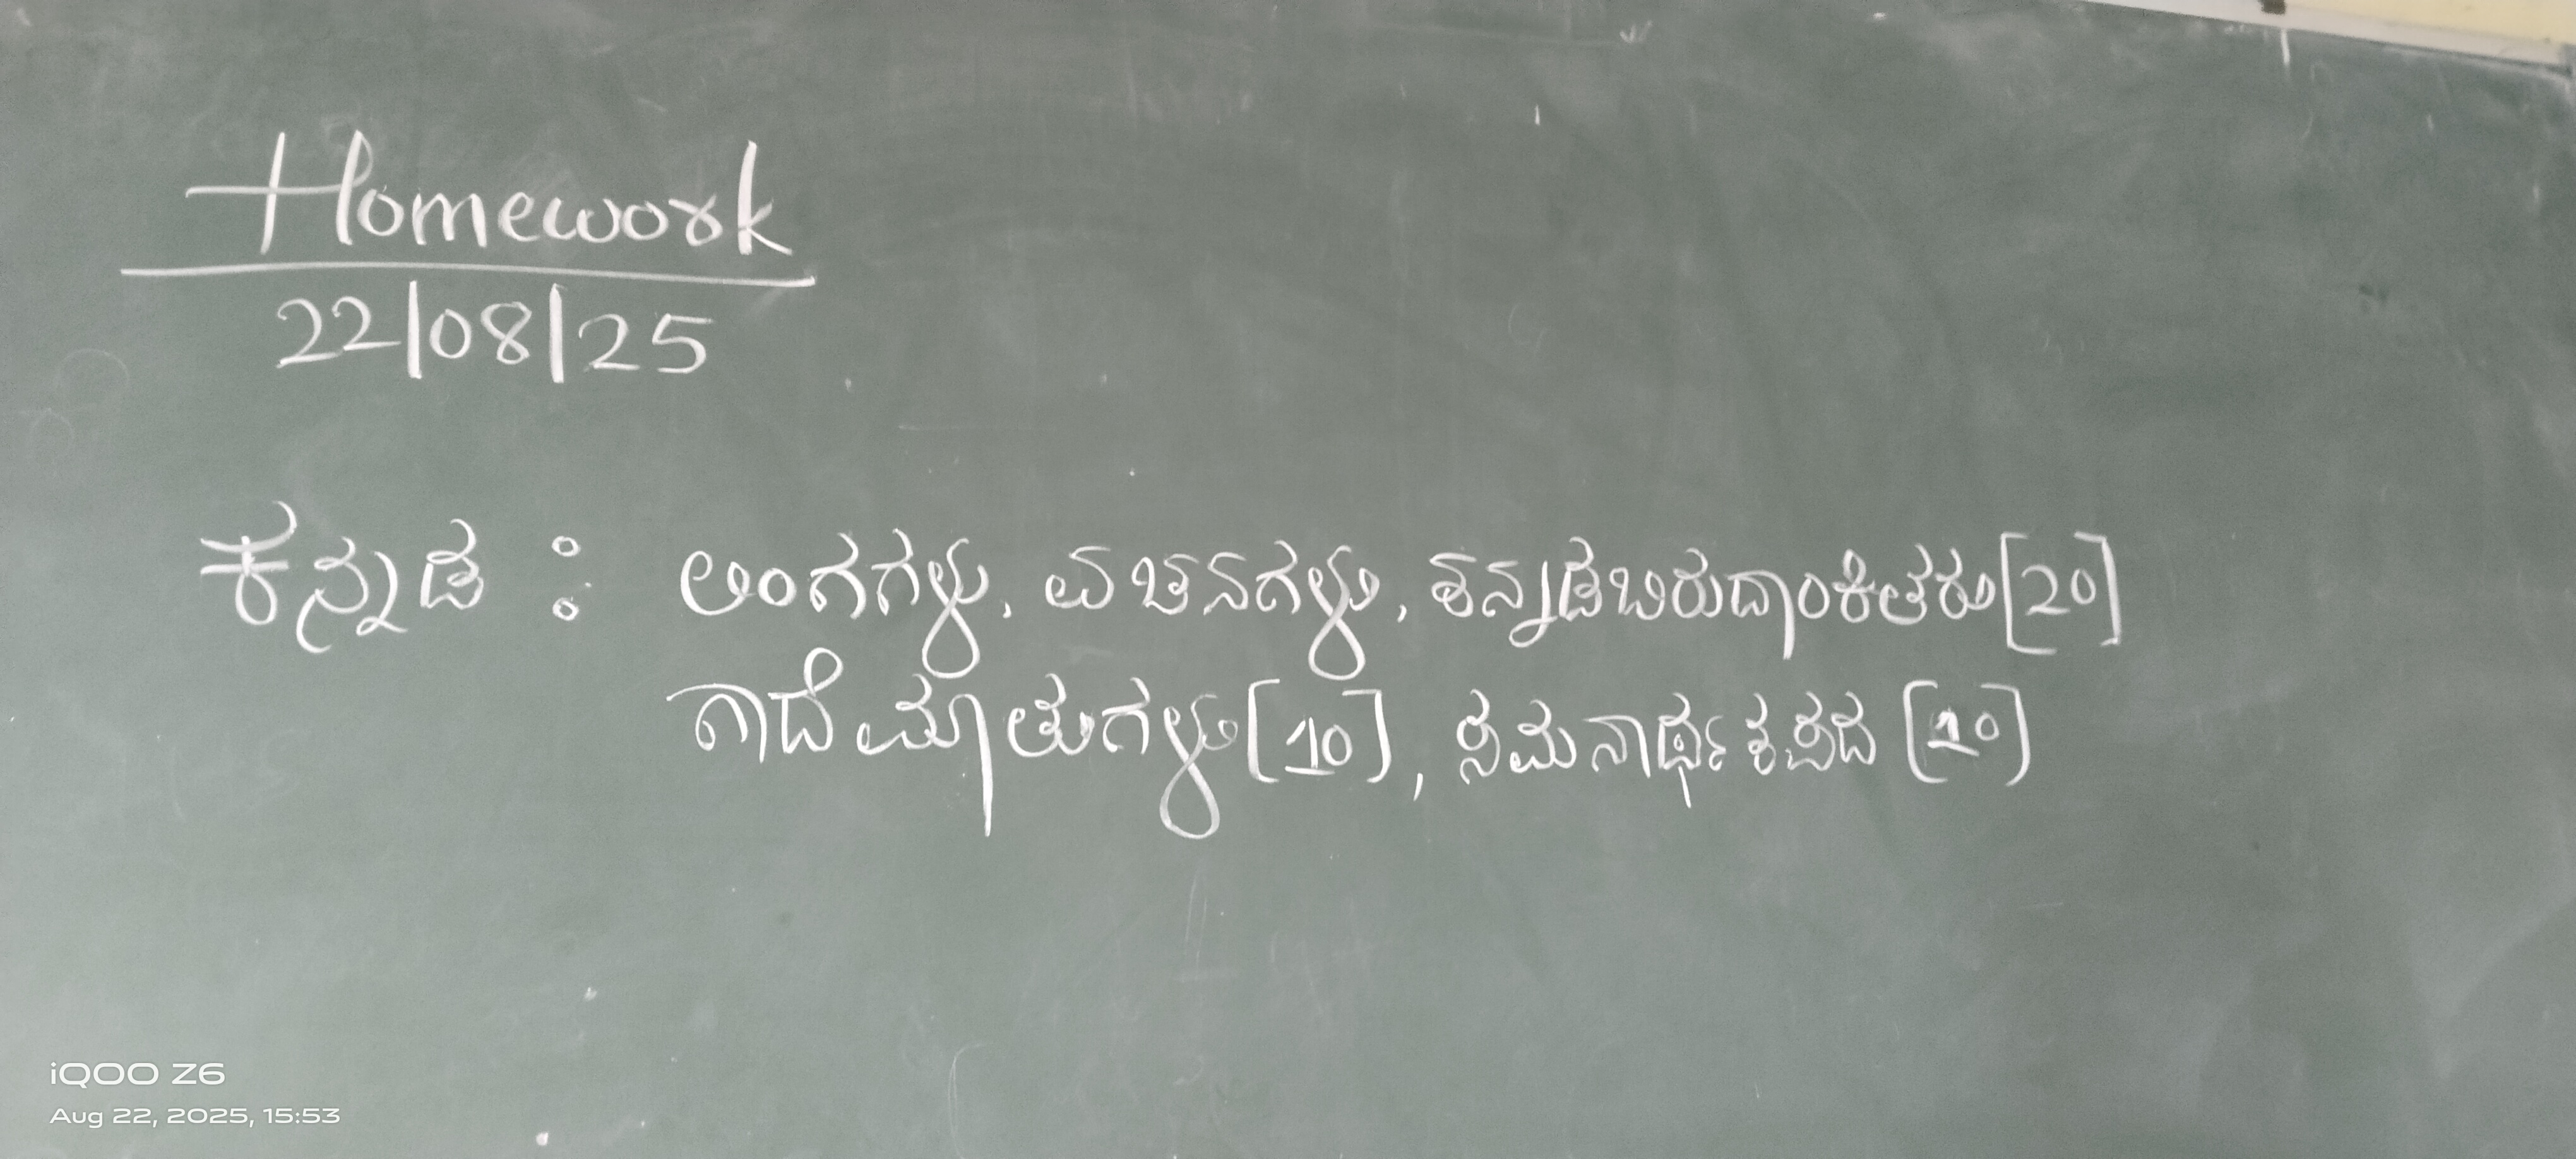 Homework
22/08/25
ಕನ್ನಡ : ಅಂಗಗಳು, ವಚನಗಳು, ಕನ್ನಡಬಿರುದಾಂಕಿತರು [20]
ಗಾದೆ ಮಾತುಗಳು [10], ಸಮನಾರ್ಥಕ ಪದ [10]
iQOO Z6
Aug 22, 2025, 15:53